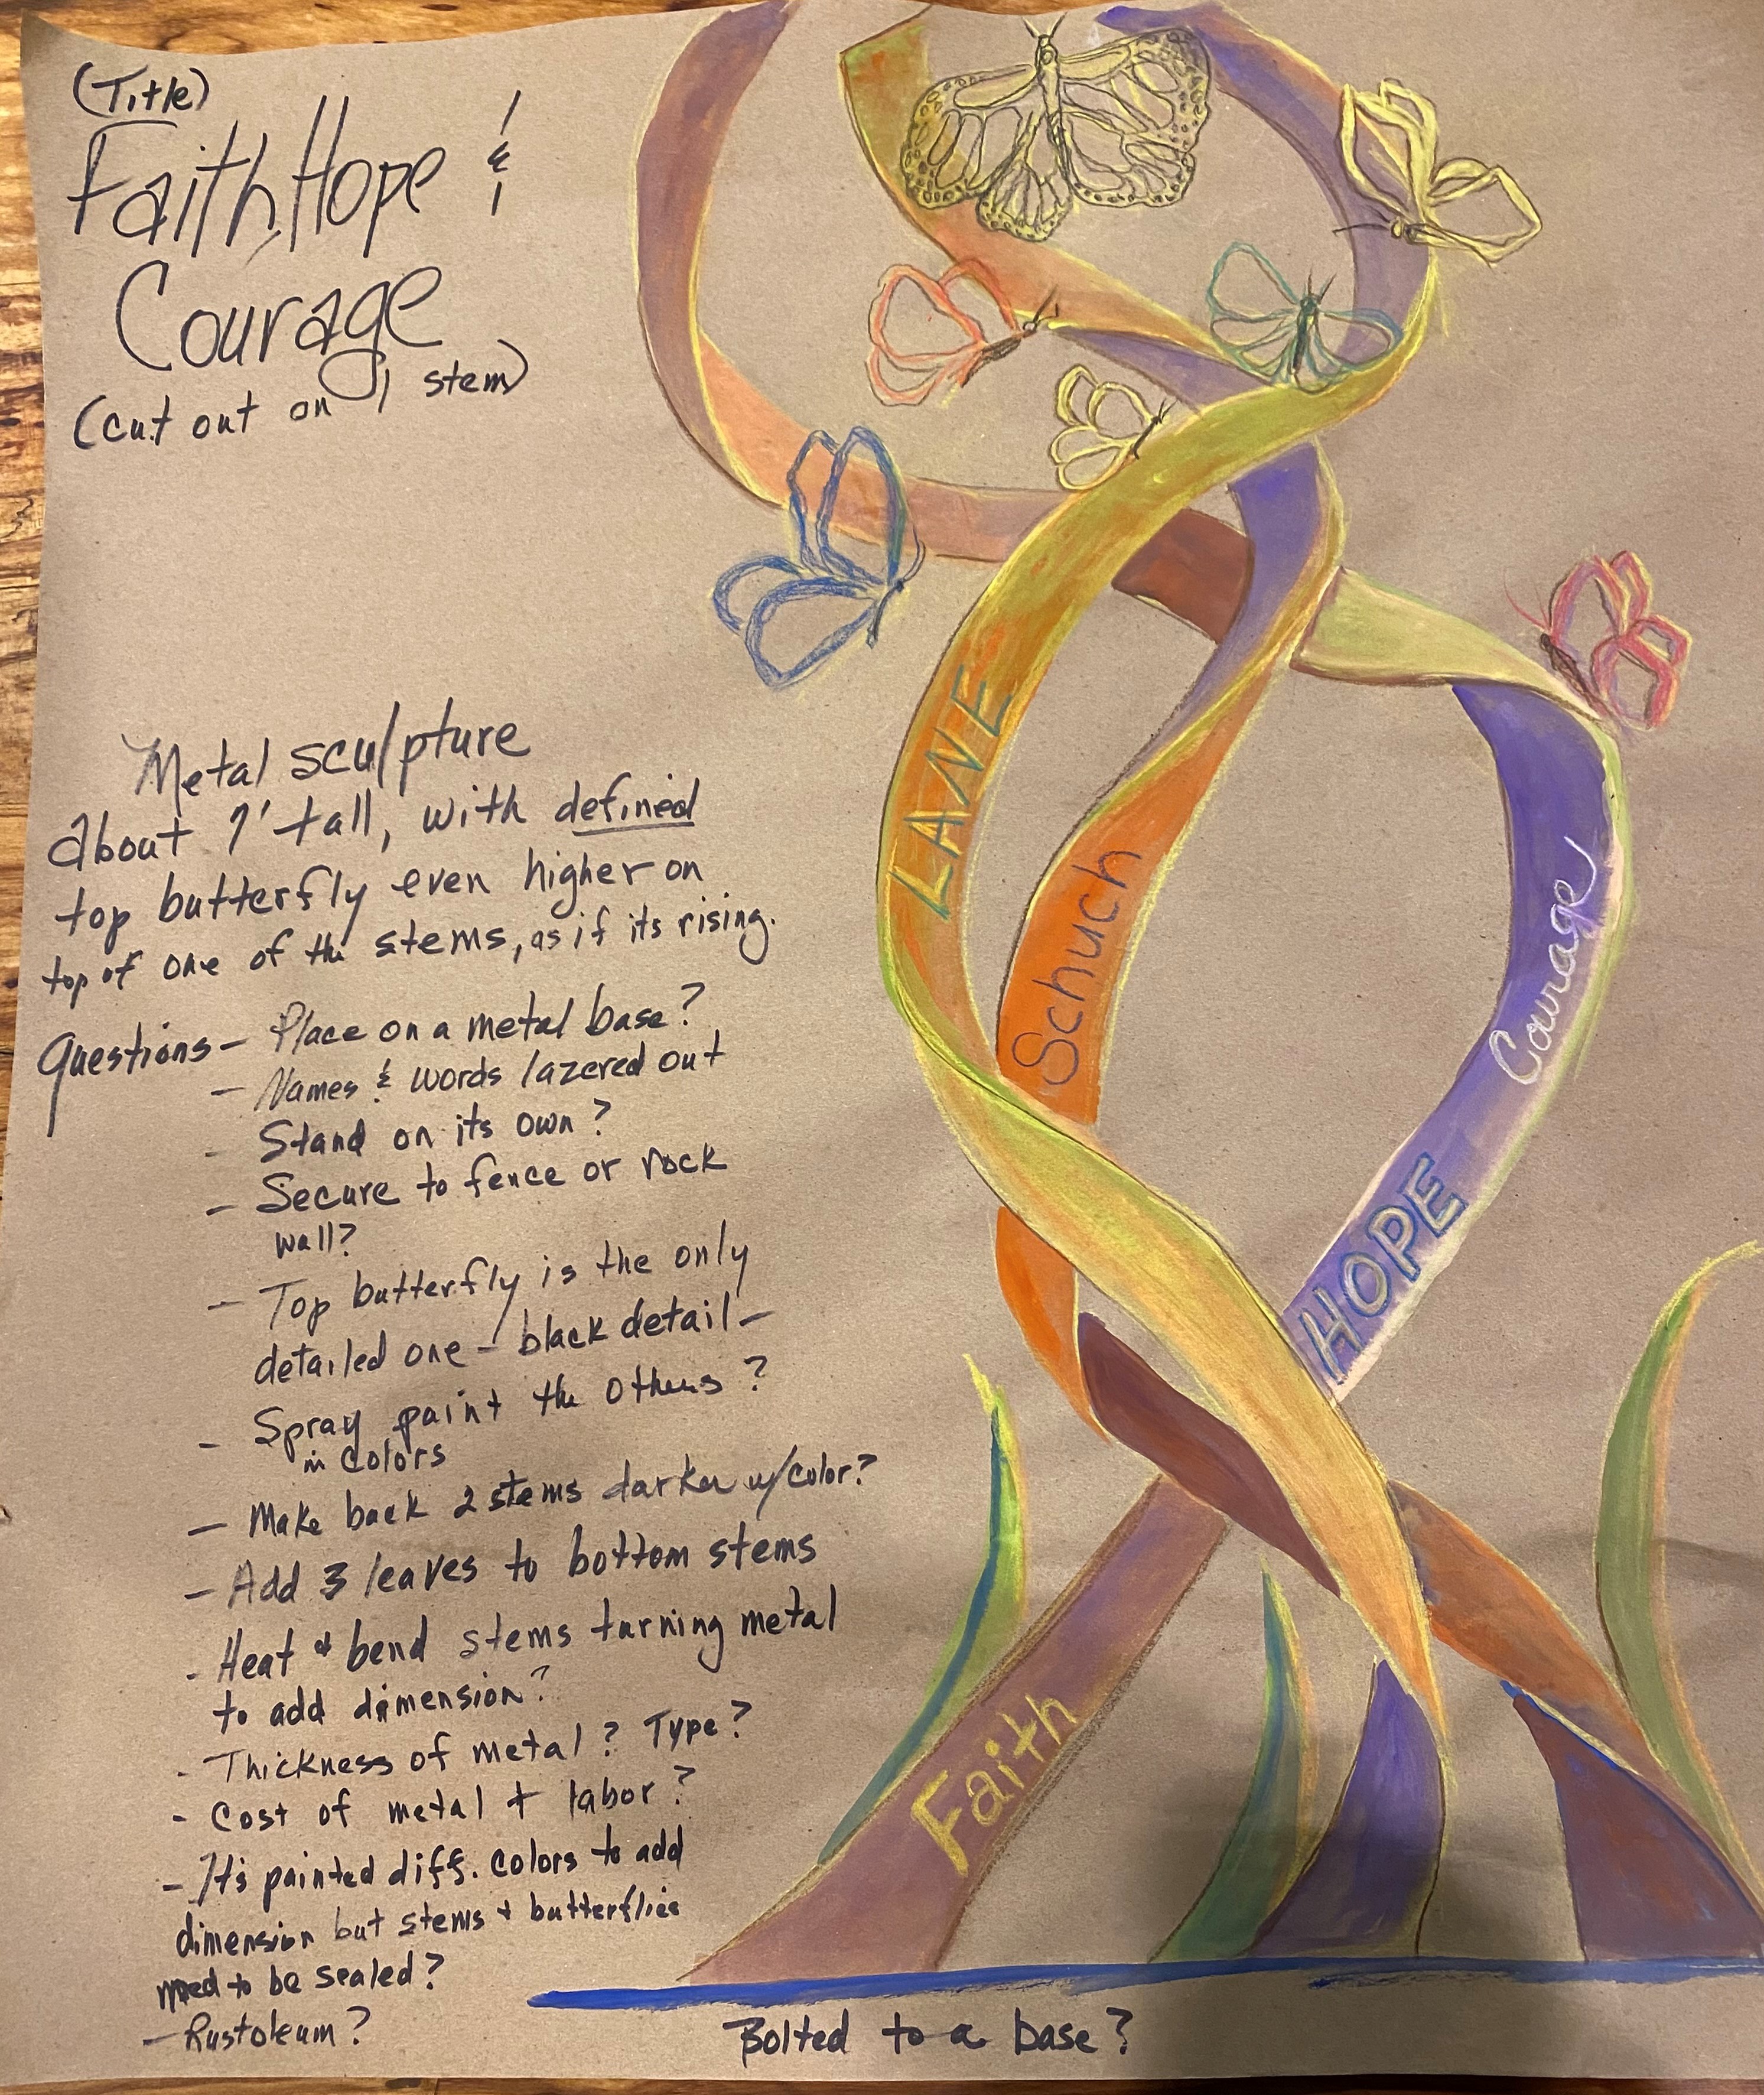 (Title)
Faith, Hope &
Courage
(cut out on 1 stem)
Metal sculpture
About 7' tall, with defined
top butterfly even higher on
top of one of the stems, as if its rising.
Questions - Place on a metal base?
- Names & words lazered out
- Stand on its own?
- Secure to fence or rock
wall?
- Top butterfly is the only
detailed one - black detail -
- Spray paint the others?
in colors
- Make back 2 stems darker w/color?
- Add 3 leaves to bottom stems
- Heat & bend stems turning metal
to add dimension?
- Thickness of metal? Type?
- Cost of metal + labor?
- It's painted diff. colors to add
dimension but stems + butterflies
need to be sealed?
- Rustoleum?
LANE
Schuch
Courage
HOPE
Faith
Bolted to a base?